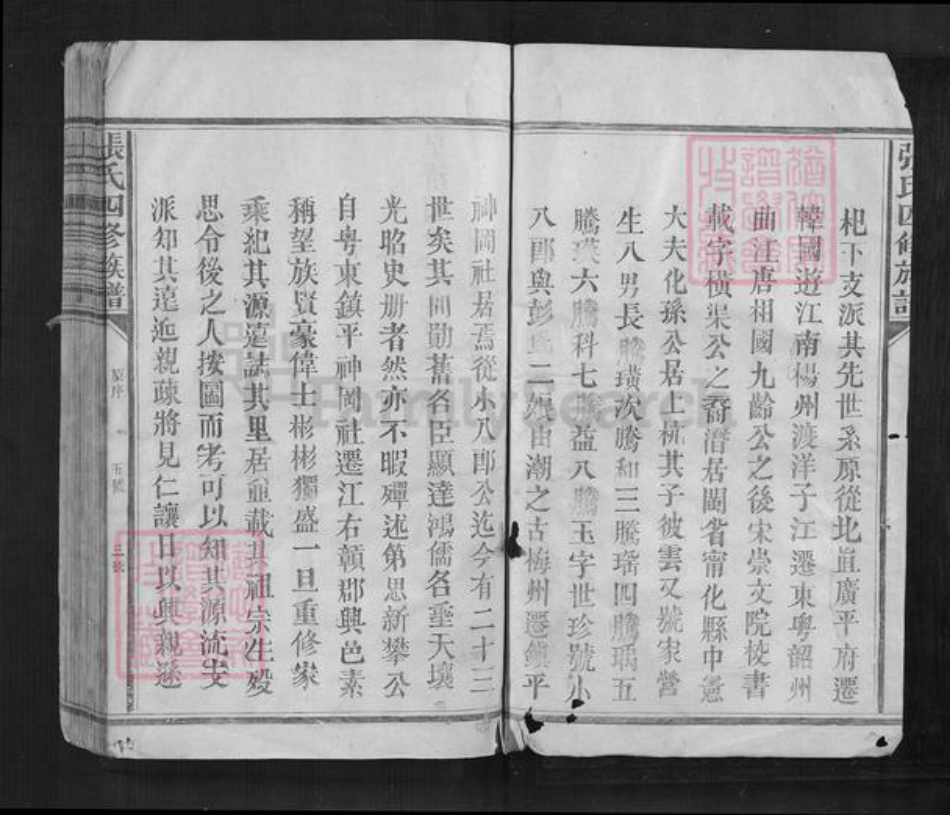 張氏四修族譜
杞下支派其先世系原從北直廣平府遷
韓國遊江南楊州渡洋子江遷東粤韶州
曲江唐相國九齡公之後宋崇文院校書
載字橫渠公之裔潛居閩省甯化縣中憲
大夫化孫公居上杭其子彼雲又號宋營
生八男長騰璜次騰和三騰瑤四騰瑀五
騰瑛六騰科七騰益八騰玉字世珍號小
八郎與彭氏二娘由潮之古梅州遷鎮平
神岡社居焉從小八郎公迄今有二十三
世矣其間勳舊名臣顯達鴻儒名垂天壤
光昭史册者然亦不暇殫述第思新攀公
自粤東鎮平神岡社遷江右贛郡興邑素
稱望族賢豪偉士彬彬獨盛一旦重修家
乘紀其源遠誌其里居並載其祖宗生歿
思令後之人按圖而考可以知其源流支
派知其遠近親疎將見仁讓日以興親遜
張氏四修族譜
原序
五號
FamilySearch